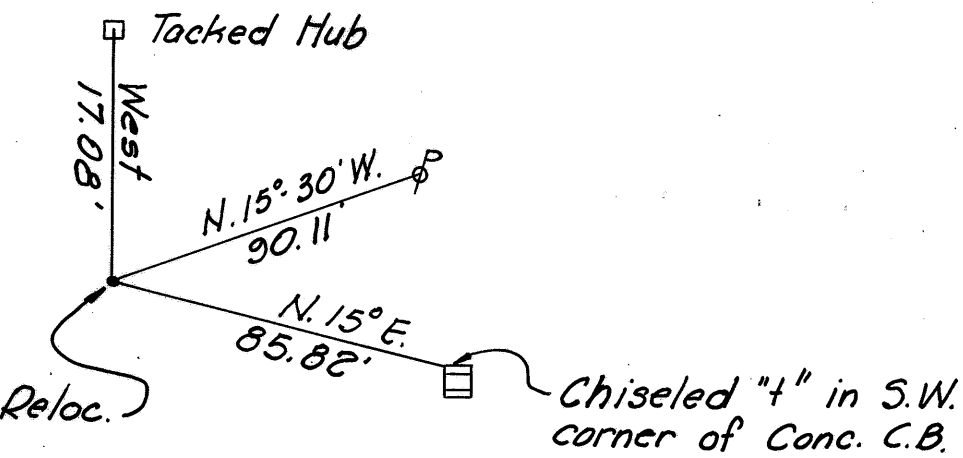 Tacked Hub
West
17.08'
N. 15°-30' W.
90.11'
P
N. 15° E.
85.82'
Reloc.
Chiseled "t" in S.W.
corner of Conc. C.B.